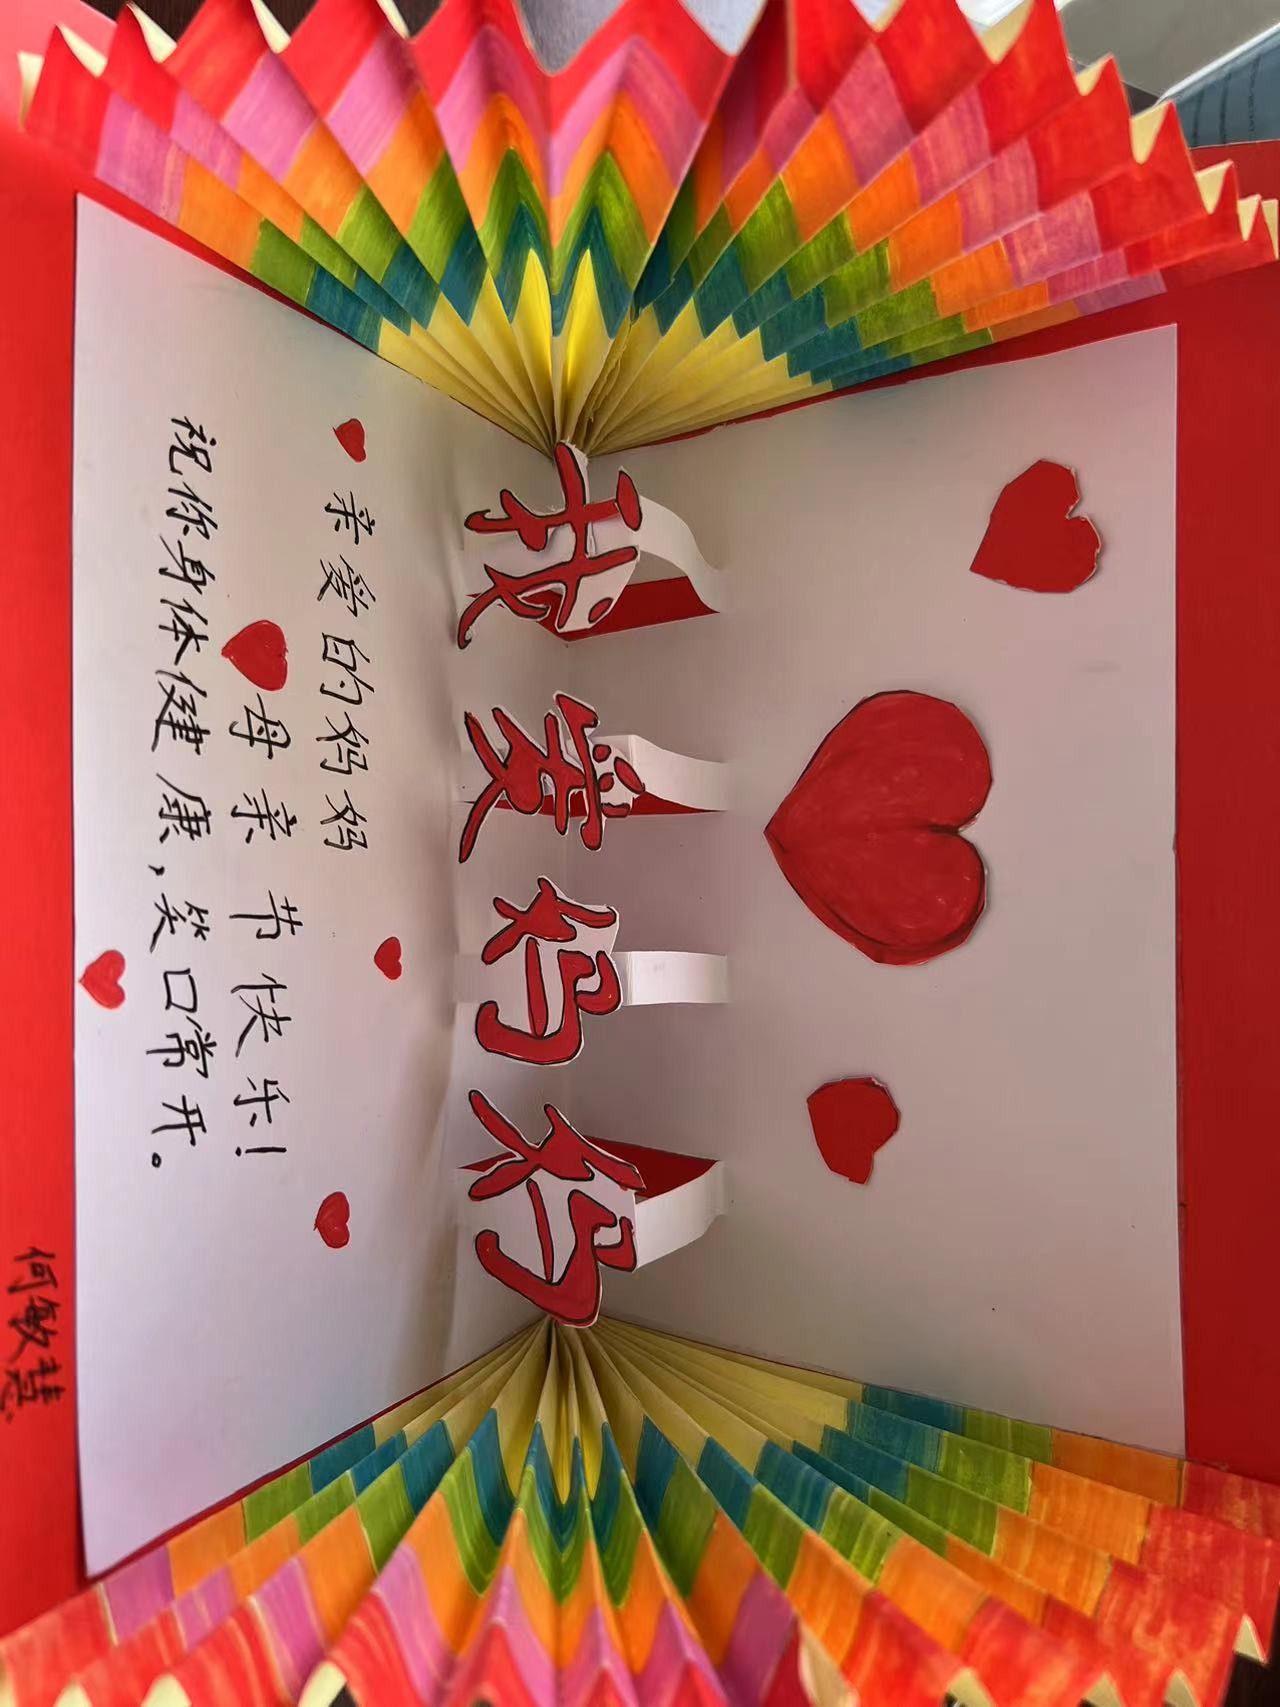 我爱妈妈
亲爱的妈妈
母亲节快乐！
祝你身体健康，笑口常开。
何敏慧